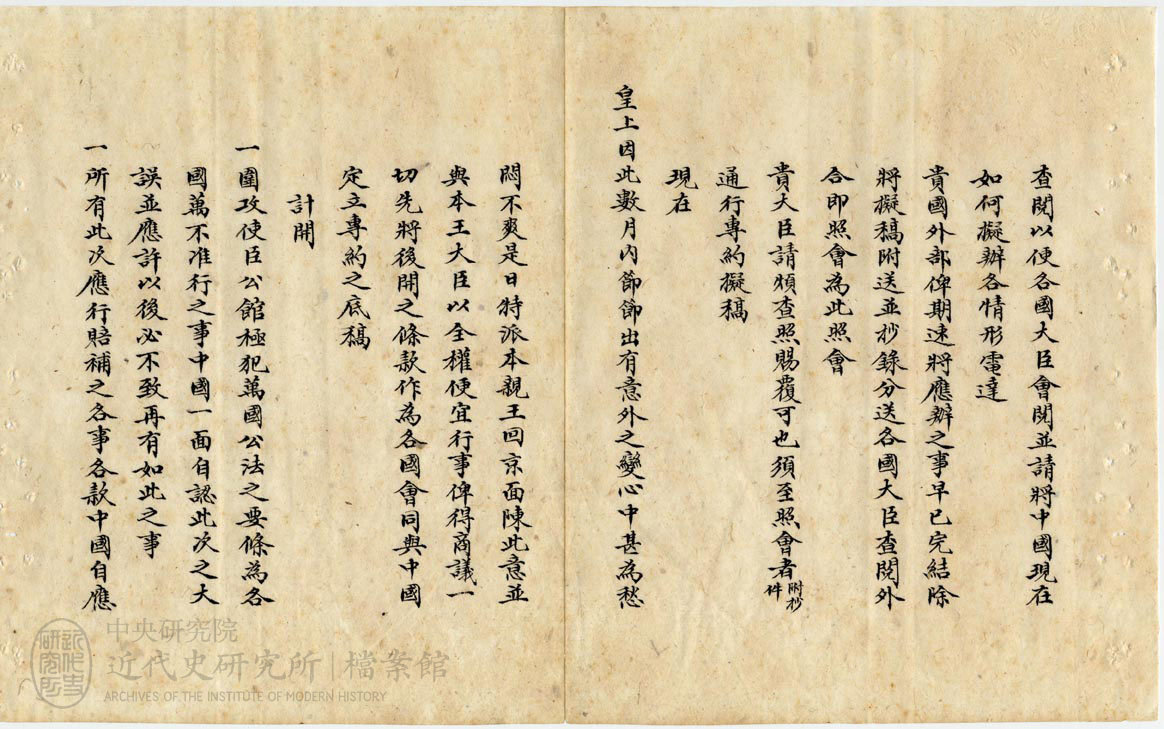 查閱以便各國大臣會閱並請將中國現在
如何擬辦各情形電達
貴國外部俾期速將應辦之事早已完結除
將擬稿附送並抄錄分送各國大臣查閱外
合即照會為此照會
貴大臣請煩查照賜覆可也須至照會者附抄件
通行專約擬稿
現在
皇上因此數月內節節出有意外之變心中甚為愁
悶不爽是日特派本親王回京面陳此意並
與本王大臣以全權便宜行事俾得商議一
切先將後開之條款作為各國會同與中國
定立專約之底稿
計開
一圍攻使臣公館極犯萬國公法之要條為各
國萬不准行之事中國一面自認此次之大
誤並應許以後必不致再有如此之事
一所有此次應行賠補之各事各款中國自應
中央研究院
近代史研究所|檔案館
ARCHIVES OF THE INSTITUTE OF MODERN HISTORY